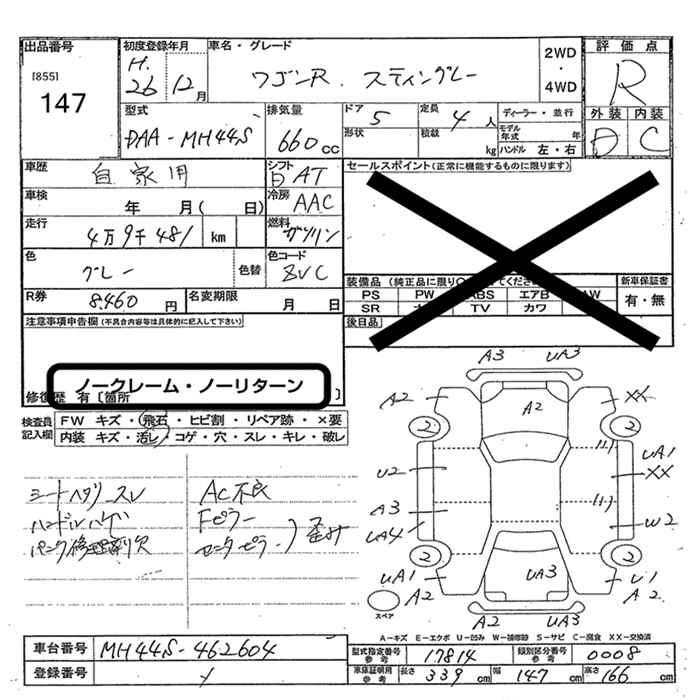 出品番号
[855]
147
初度登録年月
H. 26 12月
車名・グレード
ワゴンR. スティングレー
2WD
・
4WD
評価点
R
外装 内装
D C
型式
DAA-MH44S
排気量
660cc
ドア 5
形状
定員 4人
積載 kg
ディーラー・並行
モデル年式 年
ハンドル 左・右
車歴
自家用
シフト
日 AT
車検
年 月( 日)
冷房
AAC
走行
4万9千481 km
燃料
ガソリン
色
グレー
色替
色コード
ZVC
R券
8,460円
名変期限
月 日
セールスポイント(正常に機能するものに限ります)
装備品(純正品に限り
てくださ
PS PW ABS エアB AW
SR TV カワ
新車保証書
有・無
後日品
注意事項申告欄(不具合内容等は具体的に記入して下さい)
ノークレーム・ノーリターン
修復歴 有〔箇所 〕
検査員記入欄
FW キズ・飛石・ヒビ割・リペア跡・×要
内装 キズ・汚レ・コゲ・穴・スレ・キレ・破レ
シートヘタリ スレ
ハンドルハゲ
パンク修理剤欠
AC不良
Fピラー
センタピラー ) 歪み
A3 UA3
A2 A2 XX
2 2
U2 UA1
XX
A3
UA4 W2
2 2
UA1 UA3 U1
A2 A2
A2 UA3
スペア
A−キズ E−エクボ U−凹み W−補修跡 S−サビ C−腐食 XX−交換済
車台番号
MH44S-462604
登録番号
型式指定番号
参考
17814
類別区分番号
参考
0008
車庫証明用
参考
長さ 339cm 幅 147cm 高さ 166cm